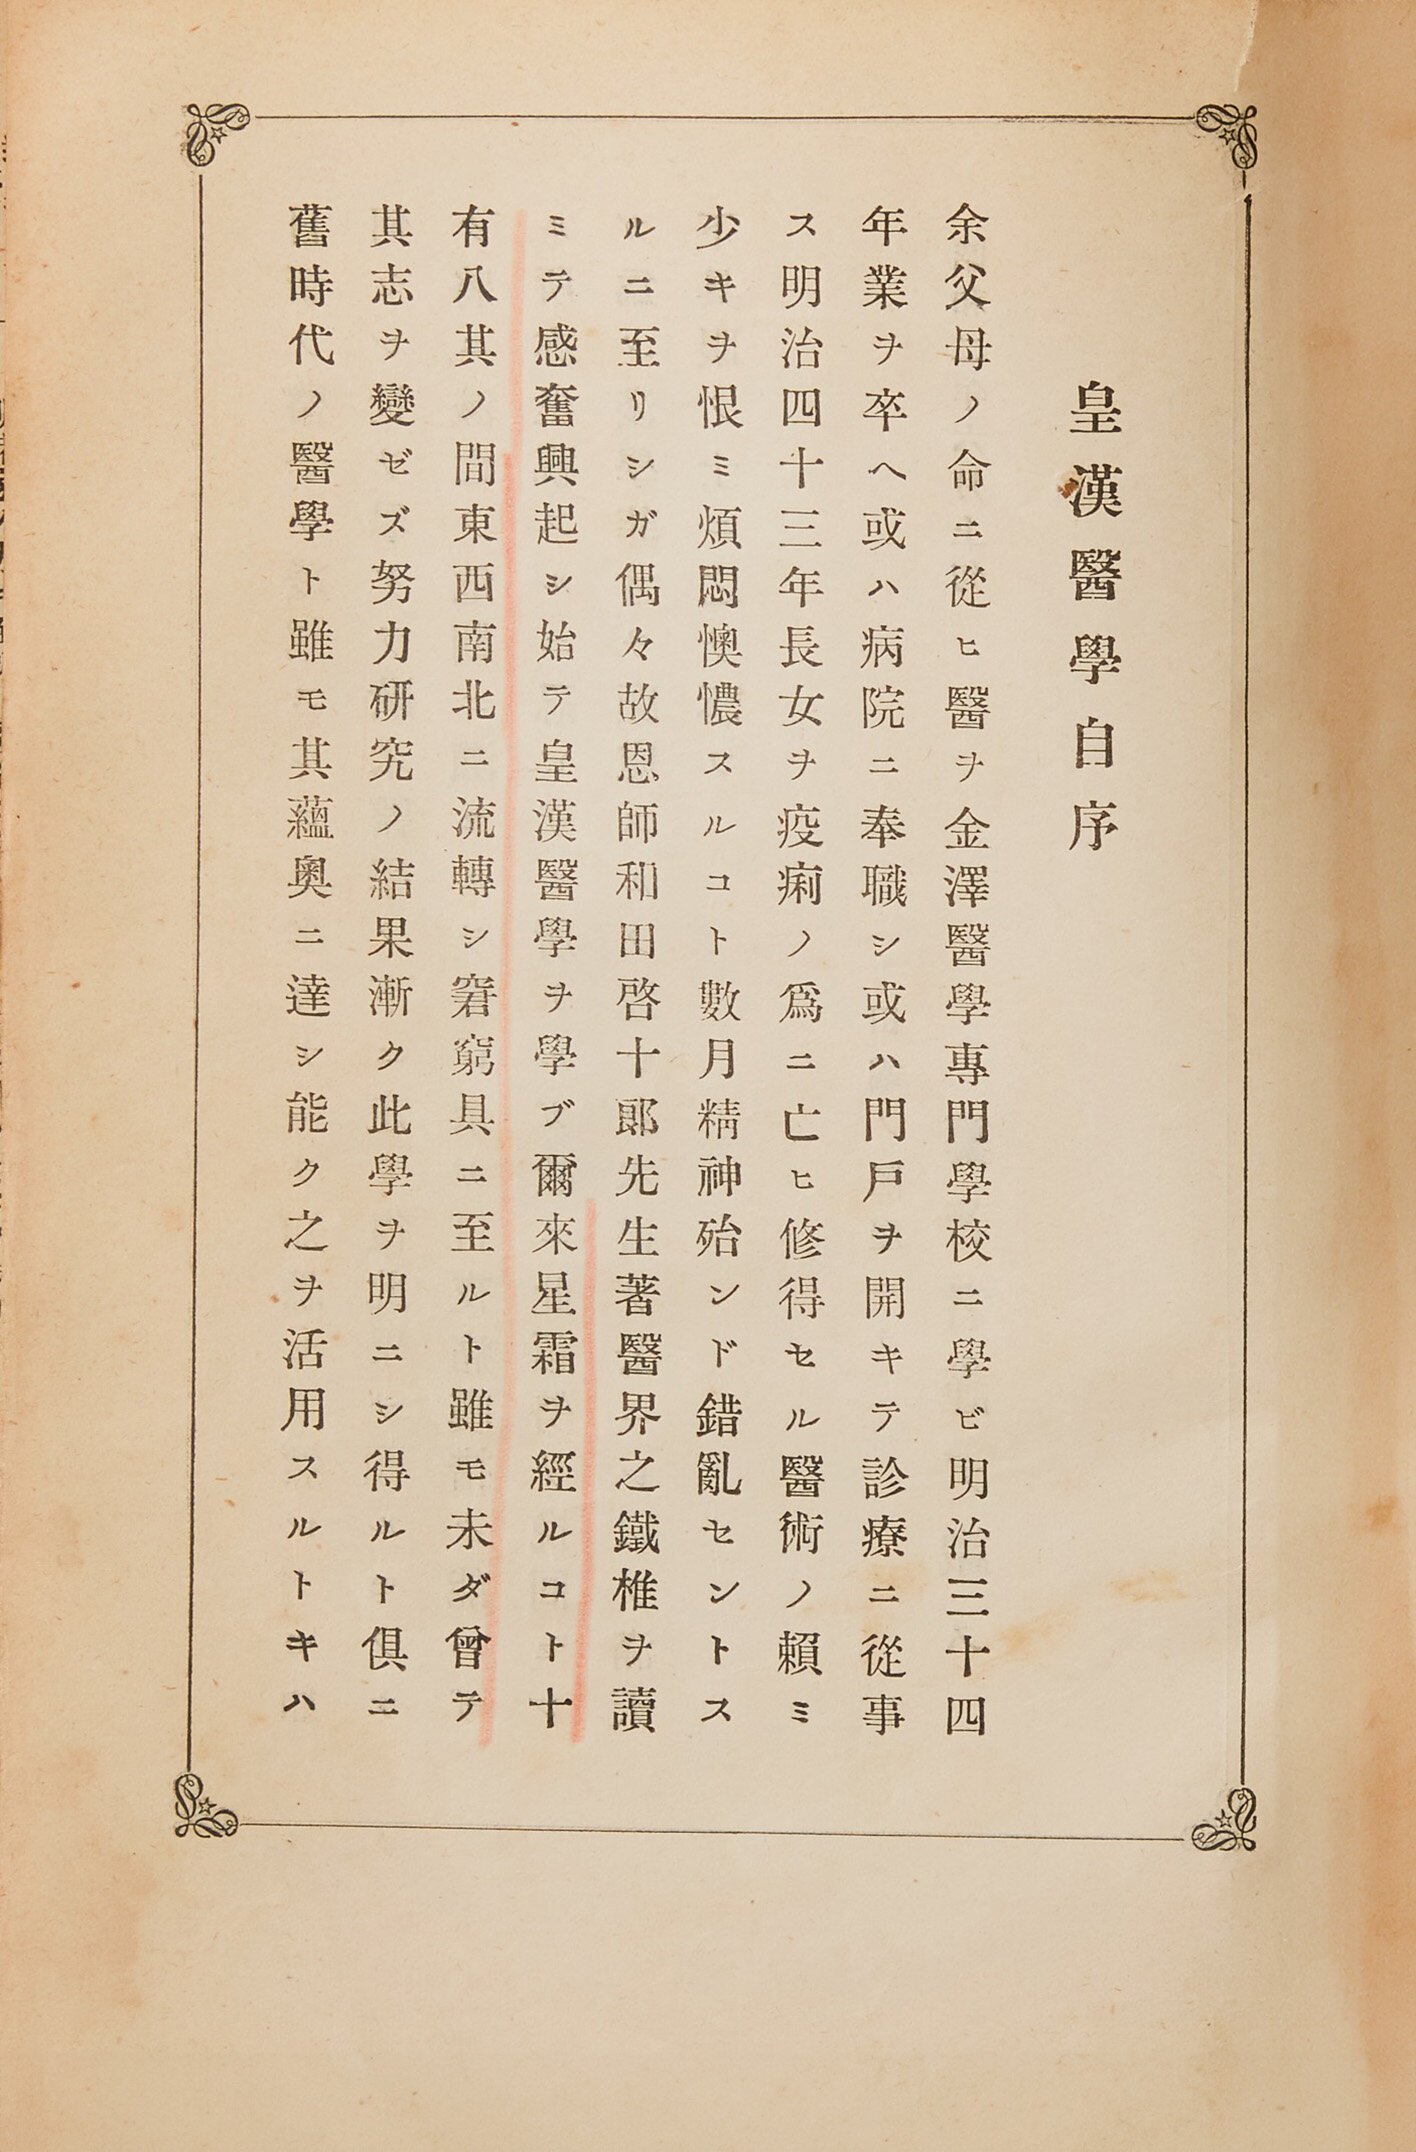 皇漢醫學自序
余父母ノ命ニ從ヒ醫ヲ金澤醫學專門學校ニ學ビ明治三十四
年業ヲ卒ヘ或ハ病院ニ奉職シ或ハ門戸ヲ開キテ診療ニ從事
ス明治四十三年長女ヲ疫痢ノ爲ニ亡ヒ修得セル醫術ノ賴ミ
少キヲ恨ミ煩悶懊憹スルコト數月精神殆ンド錯亂セントス
ルニ至リシガ偶々故恩師和田啓十郎先生著醫界之鐵椎ヲ讀
ミテ感奮興起シ始テ皇漢醫學ヲ學ブ爾來星霜ヲ經ルコト十
有八其ノ間東西南北ニ流轉シ窘窮具ニ至ルト雖モ未ダ曾テ
其志ヲ變ゼズ努力硏究ノ結果漸ク此學ヲ明ニシ得ルト俱ニ
舊時代ノ醫學ト雖モ其蘊奧ニ達シ能ク之ヲ活用スルトキハ